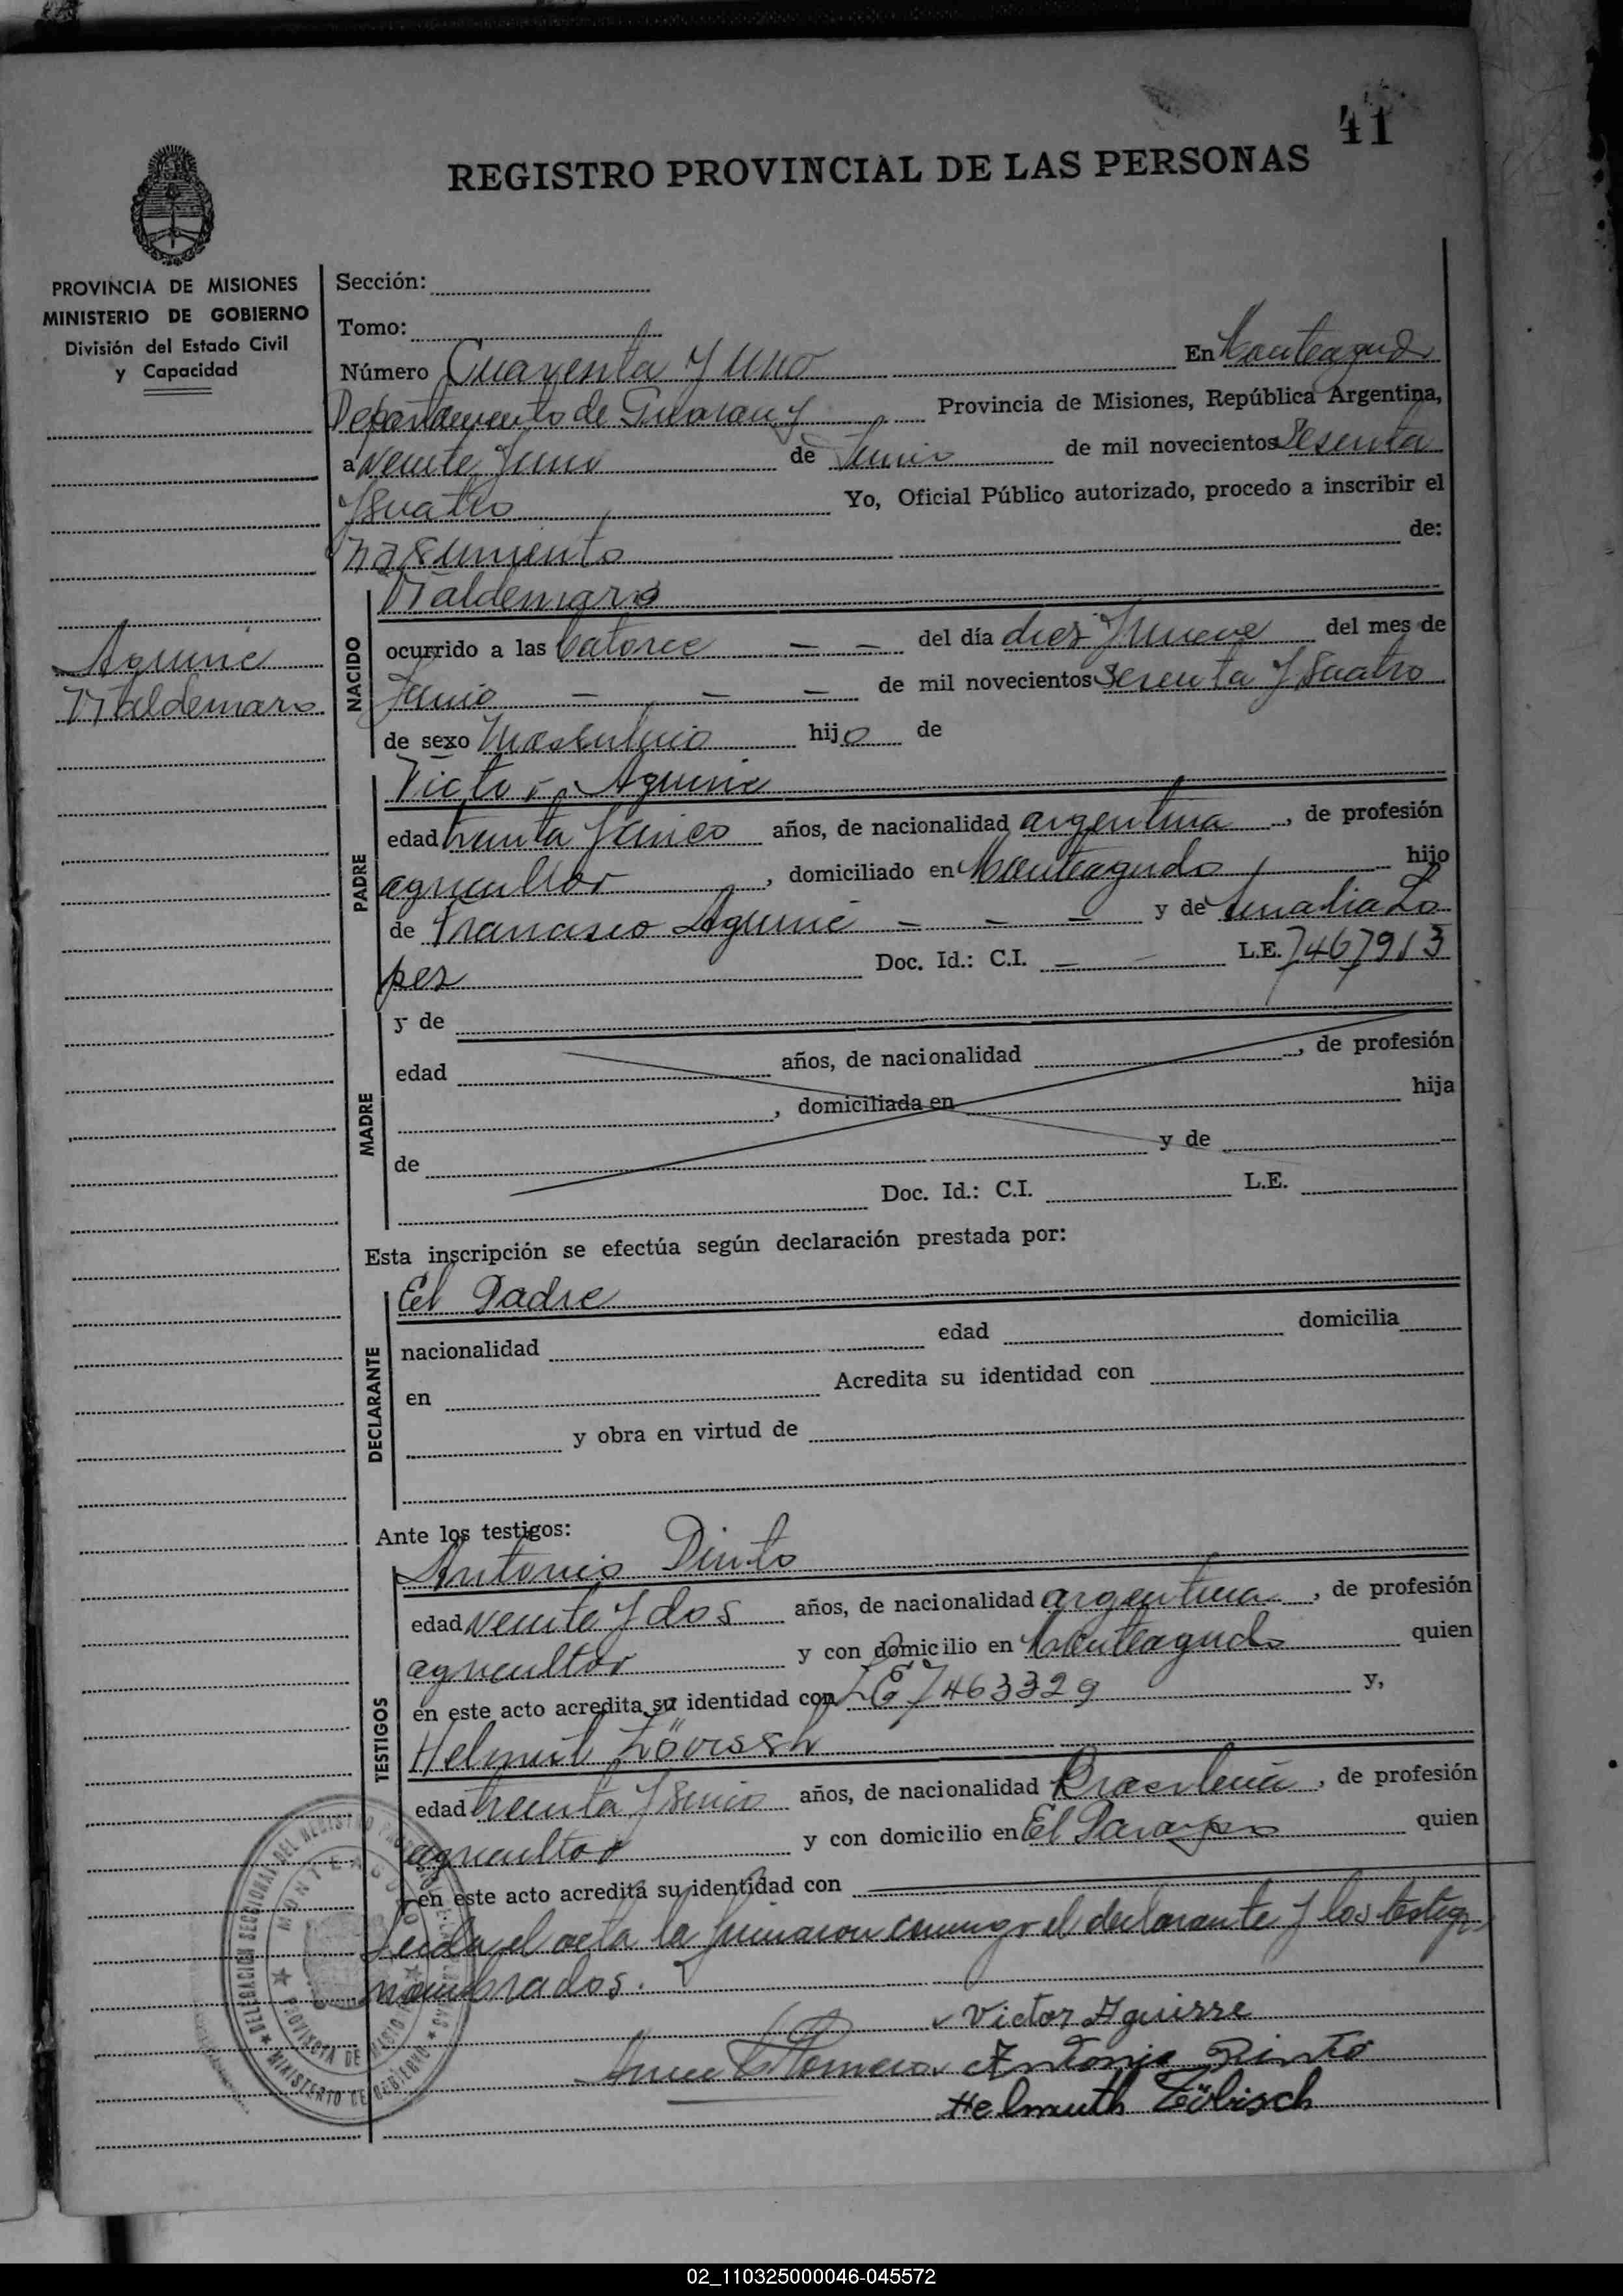 41
REGISTRO PROVINCIAL DE LAS PERSONAS
PROVINCIA DE MISIONES
MINISTERIO DE GOBIERNO
División del Estado Civil
y Capacidad
Aguirre
Valdemaro
Sección:
Tomo:
Número Cuarenta y uno En Monteagudo
Departamento de Guarany Provincia de Misiones, República Argentina,
a veinte y uno de Junio de mil novecientos Sesenta
y cuatro Yo, Oficial Público autorizado, procedo a inscribir el
nasimiento de:
NACIDO
Valdemaro
ocurrido a las Catorce — — del día diez y nueve del mes de
Junio — — — de mil novecientos Sesenta y cuatro
de sexo Masculino hijo de
PADRE
Victor Aguirre
edad treinta y cinco años, de nacionalidad argentina, de profesión
agricultor, domiciliado en Monteagudo hijo
de Francisco Aguirre — — — y de Amalia Lo
pez Doc. Id.: C.I. — — L.E. 7467913
MADRE
y de
edad años, de nacionalidad , de profesión
, domiciliada en hija
de y de
Doc. Id.: C.I. L.E.
Esta inscripción se efectúa según declaración prestada por:
DECLARANTE
El Padre
nacionalidad edad domicilia
en Acredita su identidad con
y obra en virtud de
Ante los testigos:
TESTIGOS
Antonio Pinto
edad veinte y dos años, de nacionalidad argentina, de profesión
agricultor y con domicilio en Monteagudo quien
en este acto acredita su identidad con LE 7463329 y,
Helmut
edad treinta y años, de nacionalidad Brasilera, de profesión
agricultor y con domicilio en El Parayso quien
en este acto acredita su identidad con
Leida el acta la firmaron conmigo el declarante y los testigos
nombrados.
Victor Aguirre
Antonio Pinto
Helmuth Zöbisch
DELEGACION SECCIONAL DEL REGISTRO
MONTEAGUDO
PROVINCIA DE MISIONES
MINISTERIO DE GOBIERNO
02_110325000046-045572